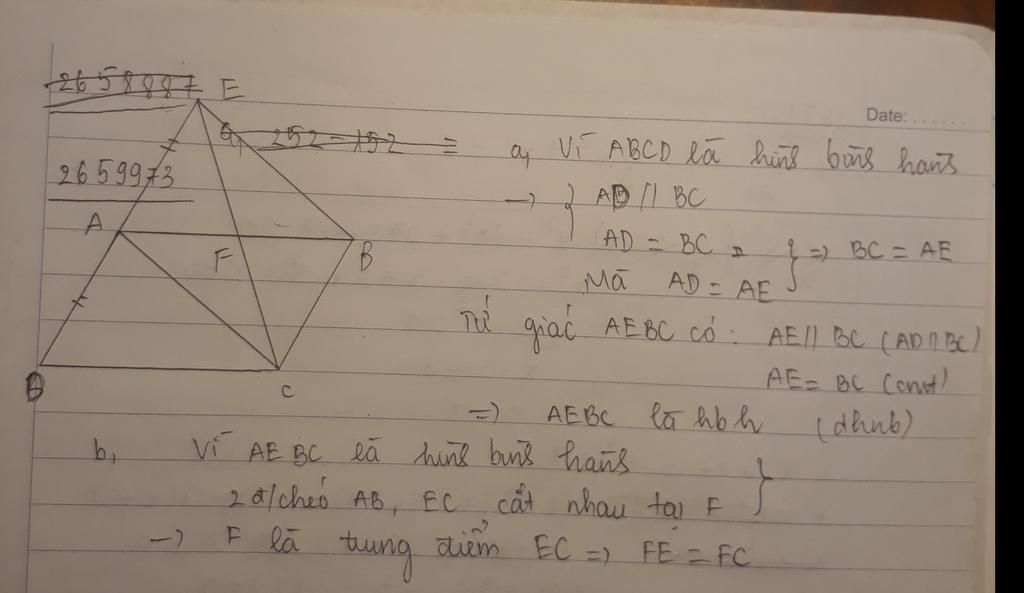 2658887 E
Date: ......
a, 252 - 152 =
a, Vì ABCD là hình bình hành
2659973
→ { AD // BC
A
AD = BC } => BC = AE
F
B
Mà AD = AE
Tứ giác AEBC có: AE // BC (AD // BC)
D
C
AE = BC (cmt)
=> AEBC là hbh (dhnb)
b, Vì AEBC là hình bình hành }
2 đ/chéo AB, EC cắt nhau tại F
→ F là trung điểm EC => FE = FC